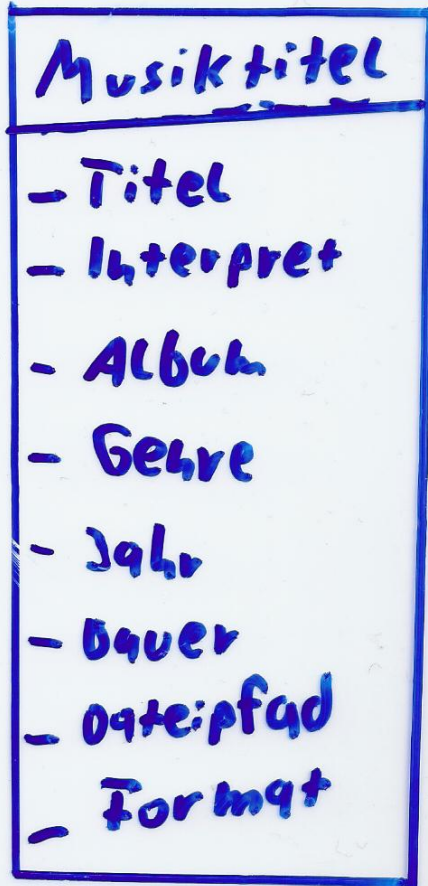 Musiktitel
- Titel
- Interpret
- Album
- Genre
- Jahr
- Dauer
- Dateipfad
- Format